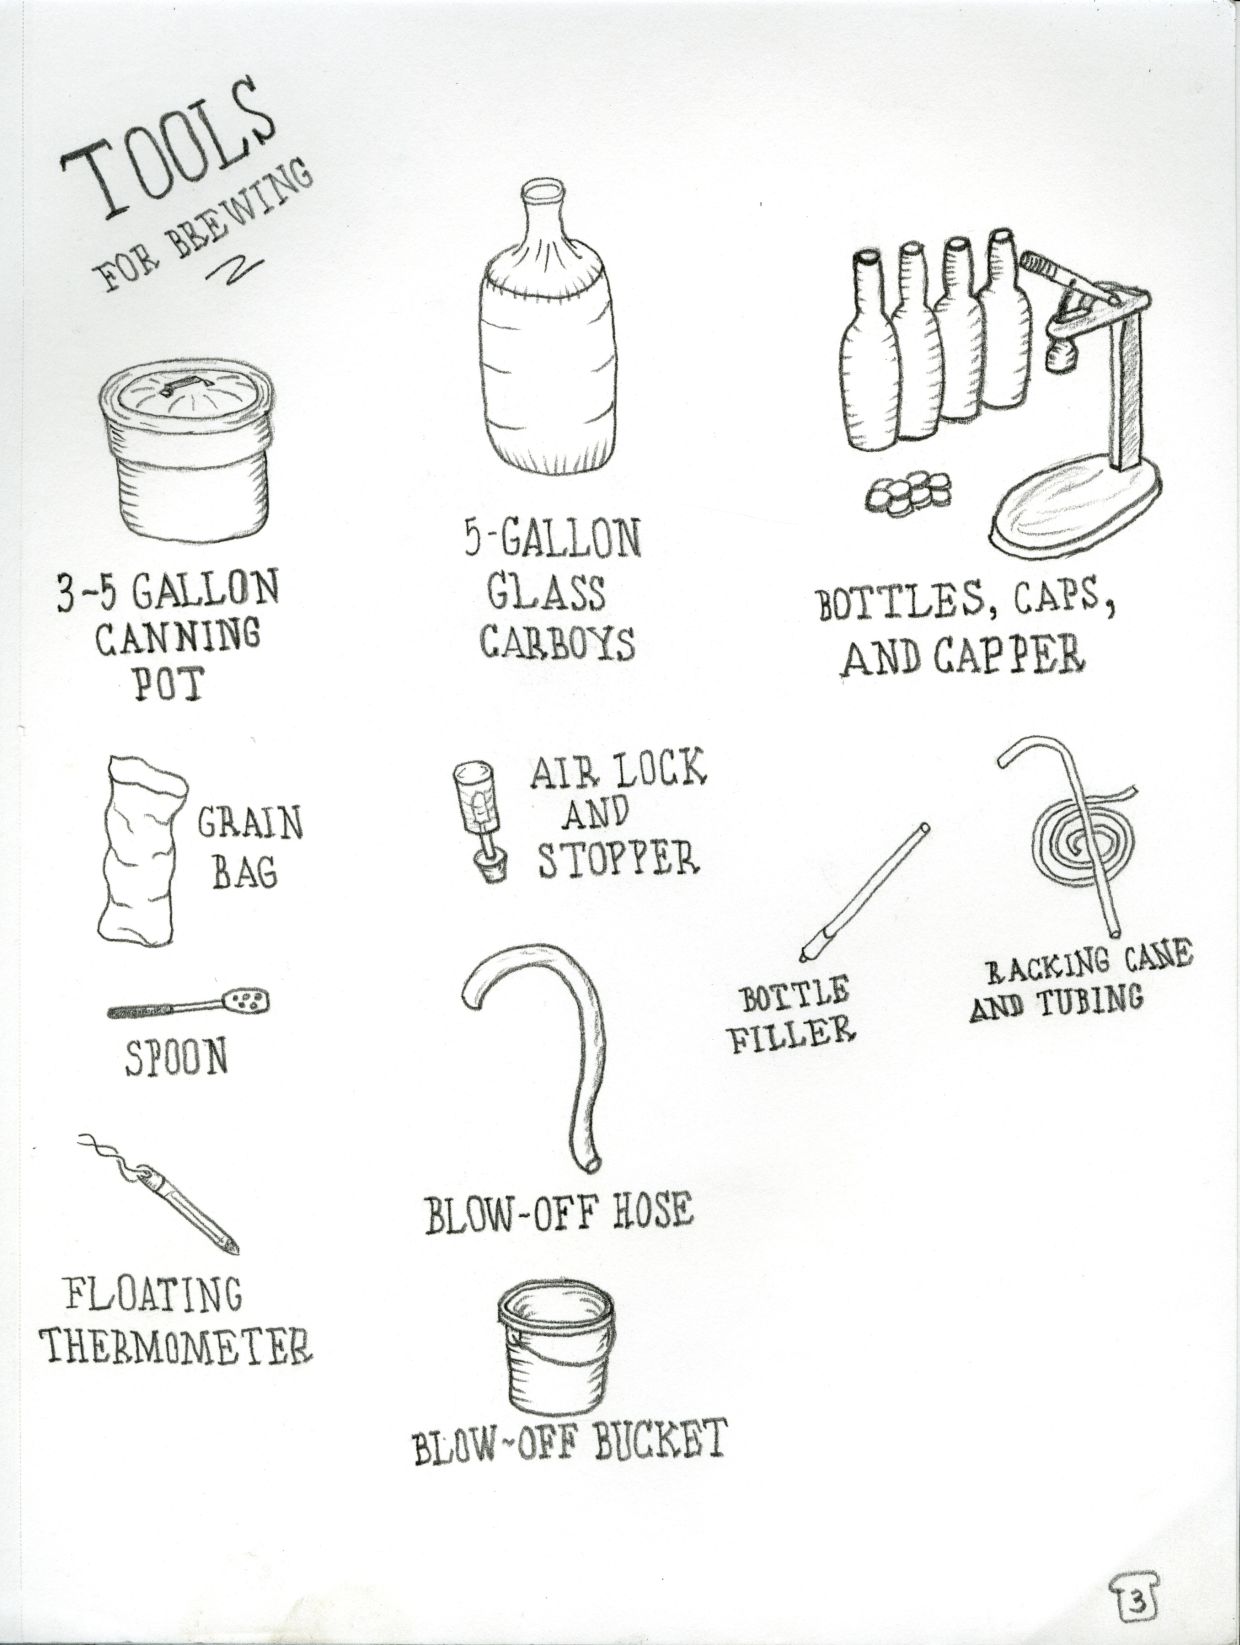 TOOLS
FOR BREWING
3-5 GALLON
CANNING
POT
5-GALLON
GLASS
CARBOYS
BOTTLES, CAPS,
AND CAPPER
GRAIN
BAG
AIR LOCK
AND
STOPPER
BOTTLE
FILLER
RACKING CANE
AND TUBING
SPOON
BLOW-OFF HOSE
FLOATING
THERMOMETER
BLOW-OFF BUCKET
3